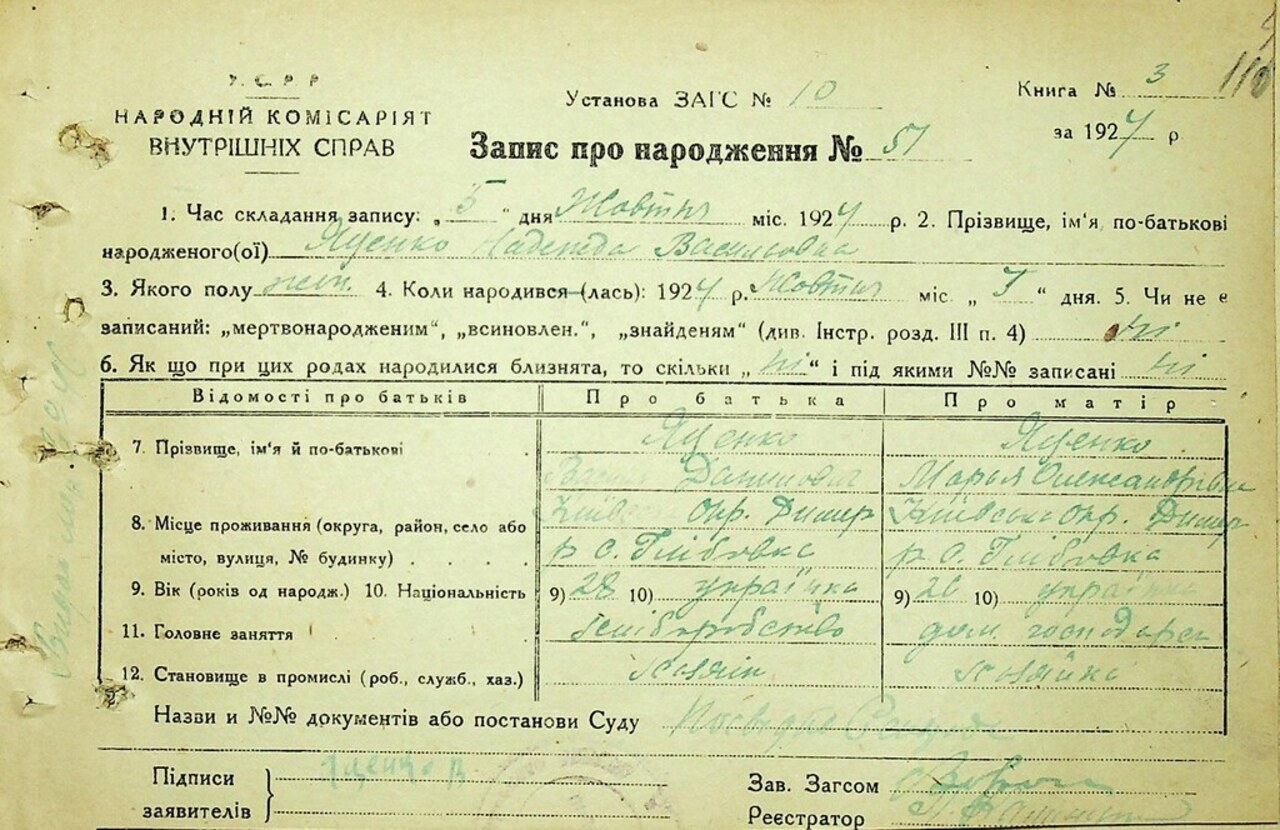 У.С.Р.Р
НАРОДНІЙ КОМІСАРІЯТ
ВНУТРІШНІХ СПРАВ
Установа ЗАГС № 10
Книга № 3
за 1924 р
110
Запис про народження № 51
1. Час складання запису: „ 5 “ дня Жовтня міс. 1924 р. 2. Прізвище, ім'я, по-батькові
народженого(ої) Яценко Надежда Васильовна
3. Якого полу жін. 4. Коли народився (лась): 1924 р. Жовтня міс. „ 3 “ дня. 5. Чи не є
записаний: „мертвонародженим“, „всиновлен.“, „знайденям“ (див. Інстр. розд. III п. 4) ні
6. Як що при цих родах народилися близнята, то скільки „ ні “ і під якими №№ записані ні
Відомості про батьків Про батька Про матір
7. Прізвище, ім'я й по-батькові Яценко Яценко
Данилович Марья Олександрівна
8. Місце проживання (округа, район, село або Київс окр. Димир Київська окр. Димир
місто, вулиця, № будинку) р с. Глібовка р с. Глібовка
9. Вік (років од народж.) 10. Національність 9) 28 10) українка 9) 26 10) українка
11. Головне заняття Хліборобство дом. господарка
12. Становище в промислі (роб., служб., хаз.) хозяїн хозяйка
Назви и №№ документів або постанови Суду
Підписи
заявителів
Яценко В
Зав. Загсом
Реєстратор